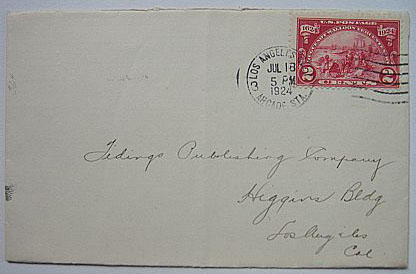 U.S. POSTAGE
HUGUENOT-WALLOON TERCENTENARY
1624 1924
2 2
CENTS
LOS ANGELES
JUL 18
5 PM
1924
ARCADE STA.
Tidings Publishing Company
Higgins Bldg
Los Angeles
Cal